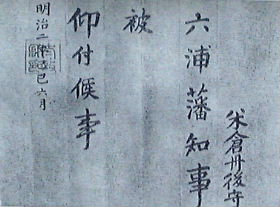 米倉丹後守
六浦藩知事
被
仰付候事
明治二年己巳六月